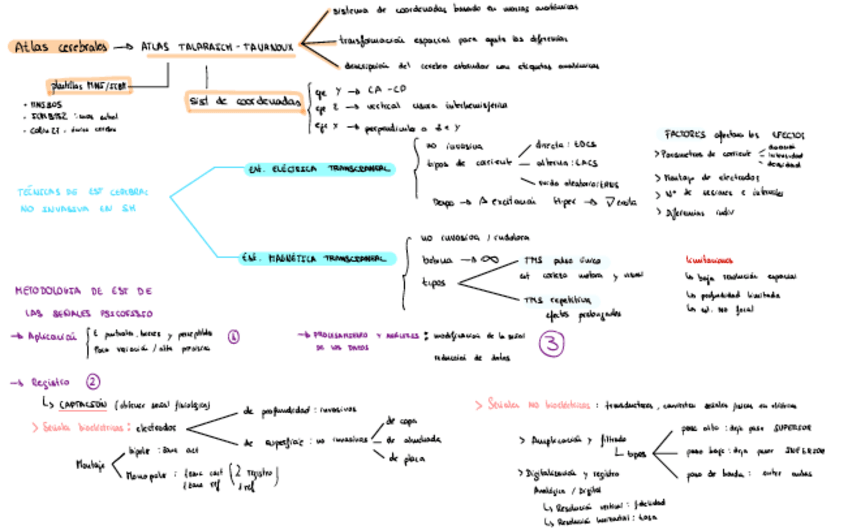 sistema de coordenadas basado en marcas anatómicas
Atlas cerebrales → ATLAS TALARAICH-TAURNOUX
transformación espacial para ajustar las diferencias
descripción del cerebro estándar con etiquetas anatómicas
plantillas MNI/ICBM
• MNI305
• ICBM152
• COLIN27
sist de coordenadas
eje Y → CA-CP
eje Z → vertical cisura interhemisférica
eje X → perpendicular a Z e Y
TÉCNICAS DE EST CEREBRAL
NO INVASIVA EN SH
EST. ELÉCTRICA TRANSCRANEAL
no invasiva
tipos de corriente
directa: tDCS
alterna: tACS
ruido aleatorio: tRNS
Despo → Δ excitación Hiper → ∇ excita
FACTORES afectan los EFECTOS
> Parámetros de corriente
duración
intensidad
densidad
> Montaje de electrodos
> Nº de sesiones e intervalo
> Diferencias indiv
EST. MAGNÉTICA TRANSCRANEAL
no invasiva / indolora
bobina → ∞
tipos
TMS pulso único
est corteza motora y visual
TMS repetitiva
efectos prolongados
limitaciones
↳ baja resolución espacial
↳ profundidad limitada
↳ est. no focal
METODOLOGIA DE EST DE
LAS SEÑALES PSICOFISIO
→ Aplicación
y perceptible
Poca variación / alta precisión
1
→ PROCESAMIENTO Y ANÁLISIS
DE LOS DATOS
: modificación de la señal
reducción de datos
3
→ Registro 2
↳ CAPTACIÓN (obtener señal fisiológica)
> Señales bioeléctricas: electrodos
de profundidad: invasivos
de superficie: no invasivos
de copa
de almohada
de placa
Montaje
bipolar: zona act
Monopolar: 1 zona act
1 zona ref
2 registro
1 ref
> Señales NO bioeléctricas: transductores, convierten señales físicas en eléctricas
> Amplificación y filtrado
↳ tipos
paso alto: deja pasar SUPERIOR
paso bajo: deja pasar INFERIOR
paso de banda: entre ambas
> Digitalización y registro
Analógica / Digital
↳ Resolución vertical: fidelidad
↳ Resolución horizontal: tasa